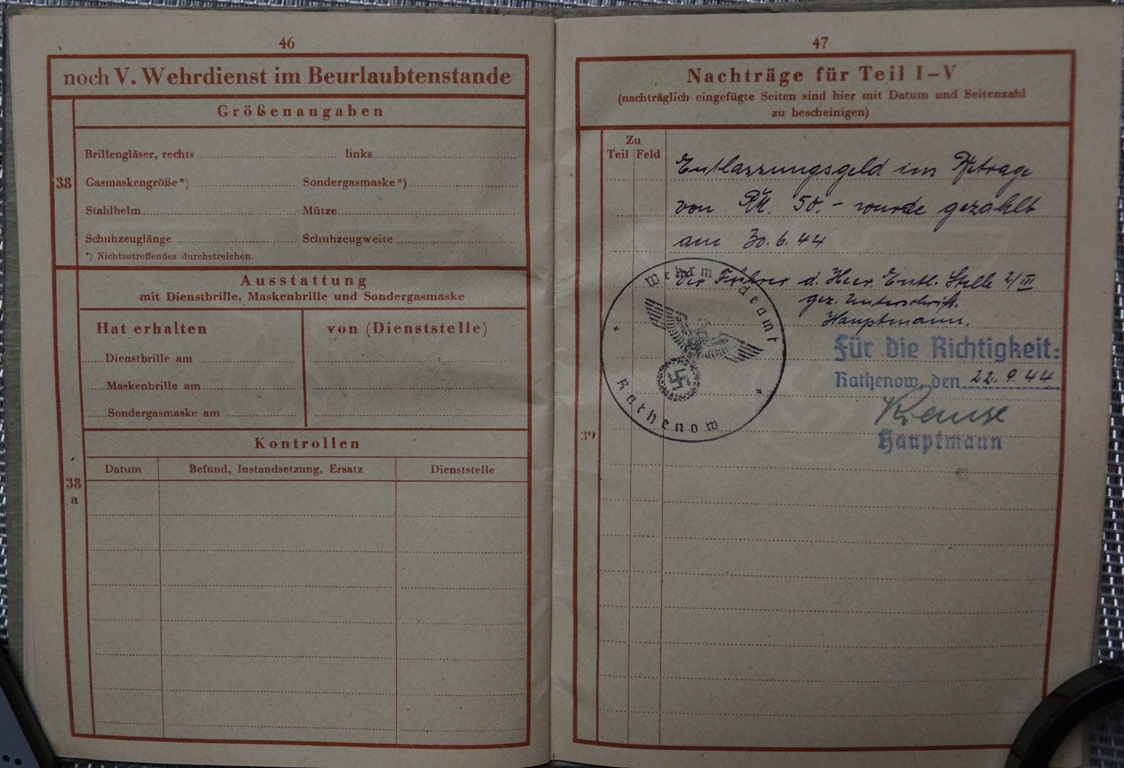 46
noch V. Wehrdienst im Beurlaubtenstande
38
Größenangaben
Brillengläser, rechts links
Gasmaskengröße*) Sondergasmaske*)
Stahlhelm Mütze
Schuhzeuglänge Schuhzeugweite
*) Nichtzutreffendes durchstreichen.
Ausstattung
mit Dienstbrille, Maskenbrille und Sondergasmaske
Hat erhalten von (Dienststelle)
Dienstbrille am
Maskenbrille am
Sondergasmaske am
38
a
Kontrollen
Datum Befund, Instandsetzung, Ersatz Dienststelle
47
Nachträge für Teil I-V
(nachträglich eingefügte Seiten sind hier mit Datum und Seitenzahl
zu bescheinigen)
Zu
Teil Feld
39
Entlassungsgeld im Betrage
von RM. 50.- wurde gezahlt
am 30.6.44
Der Führer d. Heer. Entl. Stelle 2/III
gez. Unterschrift.
Hauptmann.
Wehrmeldeamt
Rathenow
Für die Richtigkeit:
Rathenow, den 22.9.44
Hauptmann